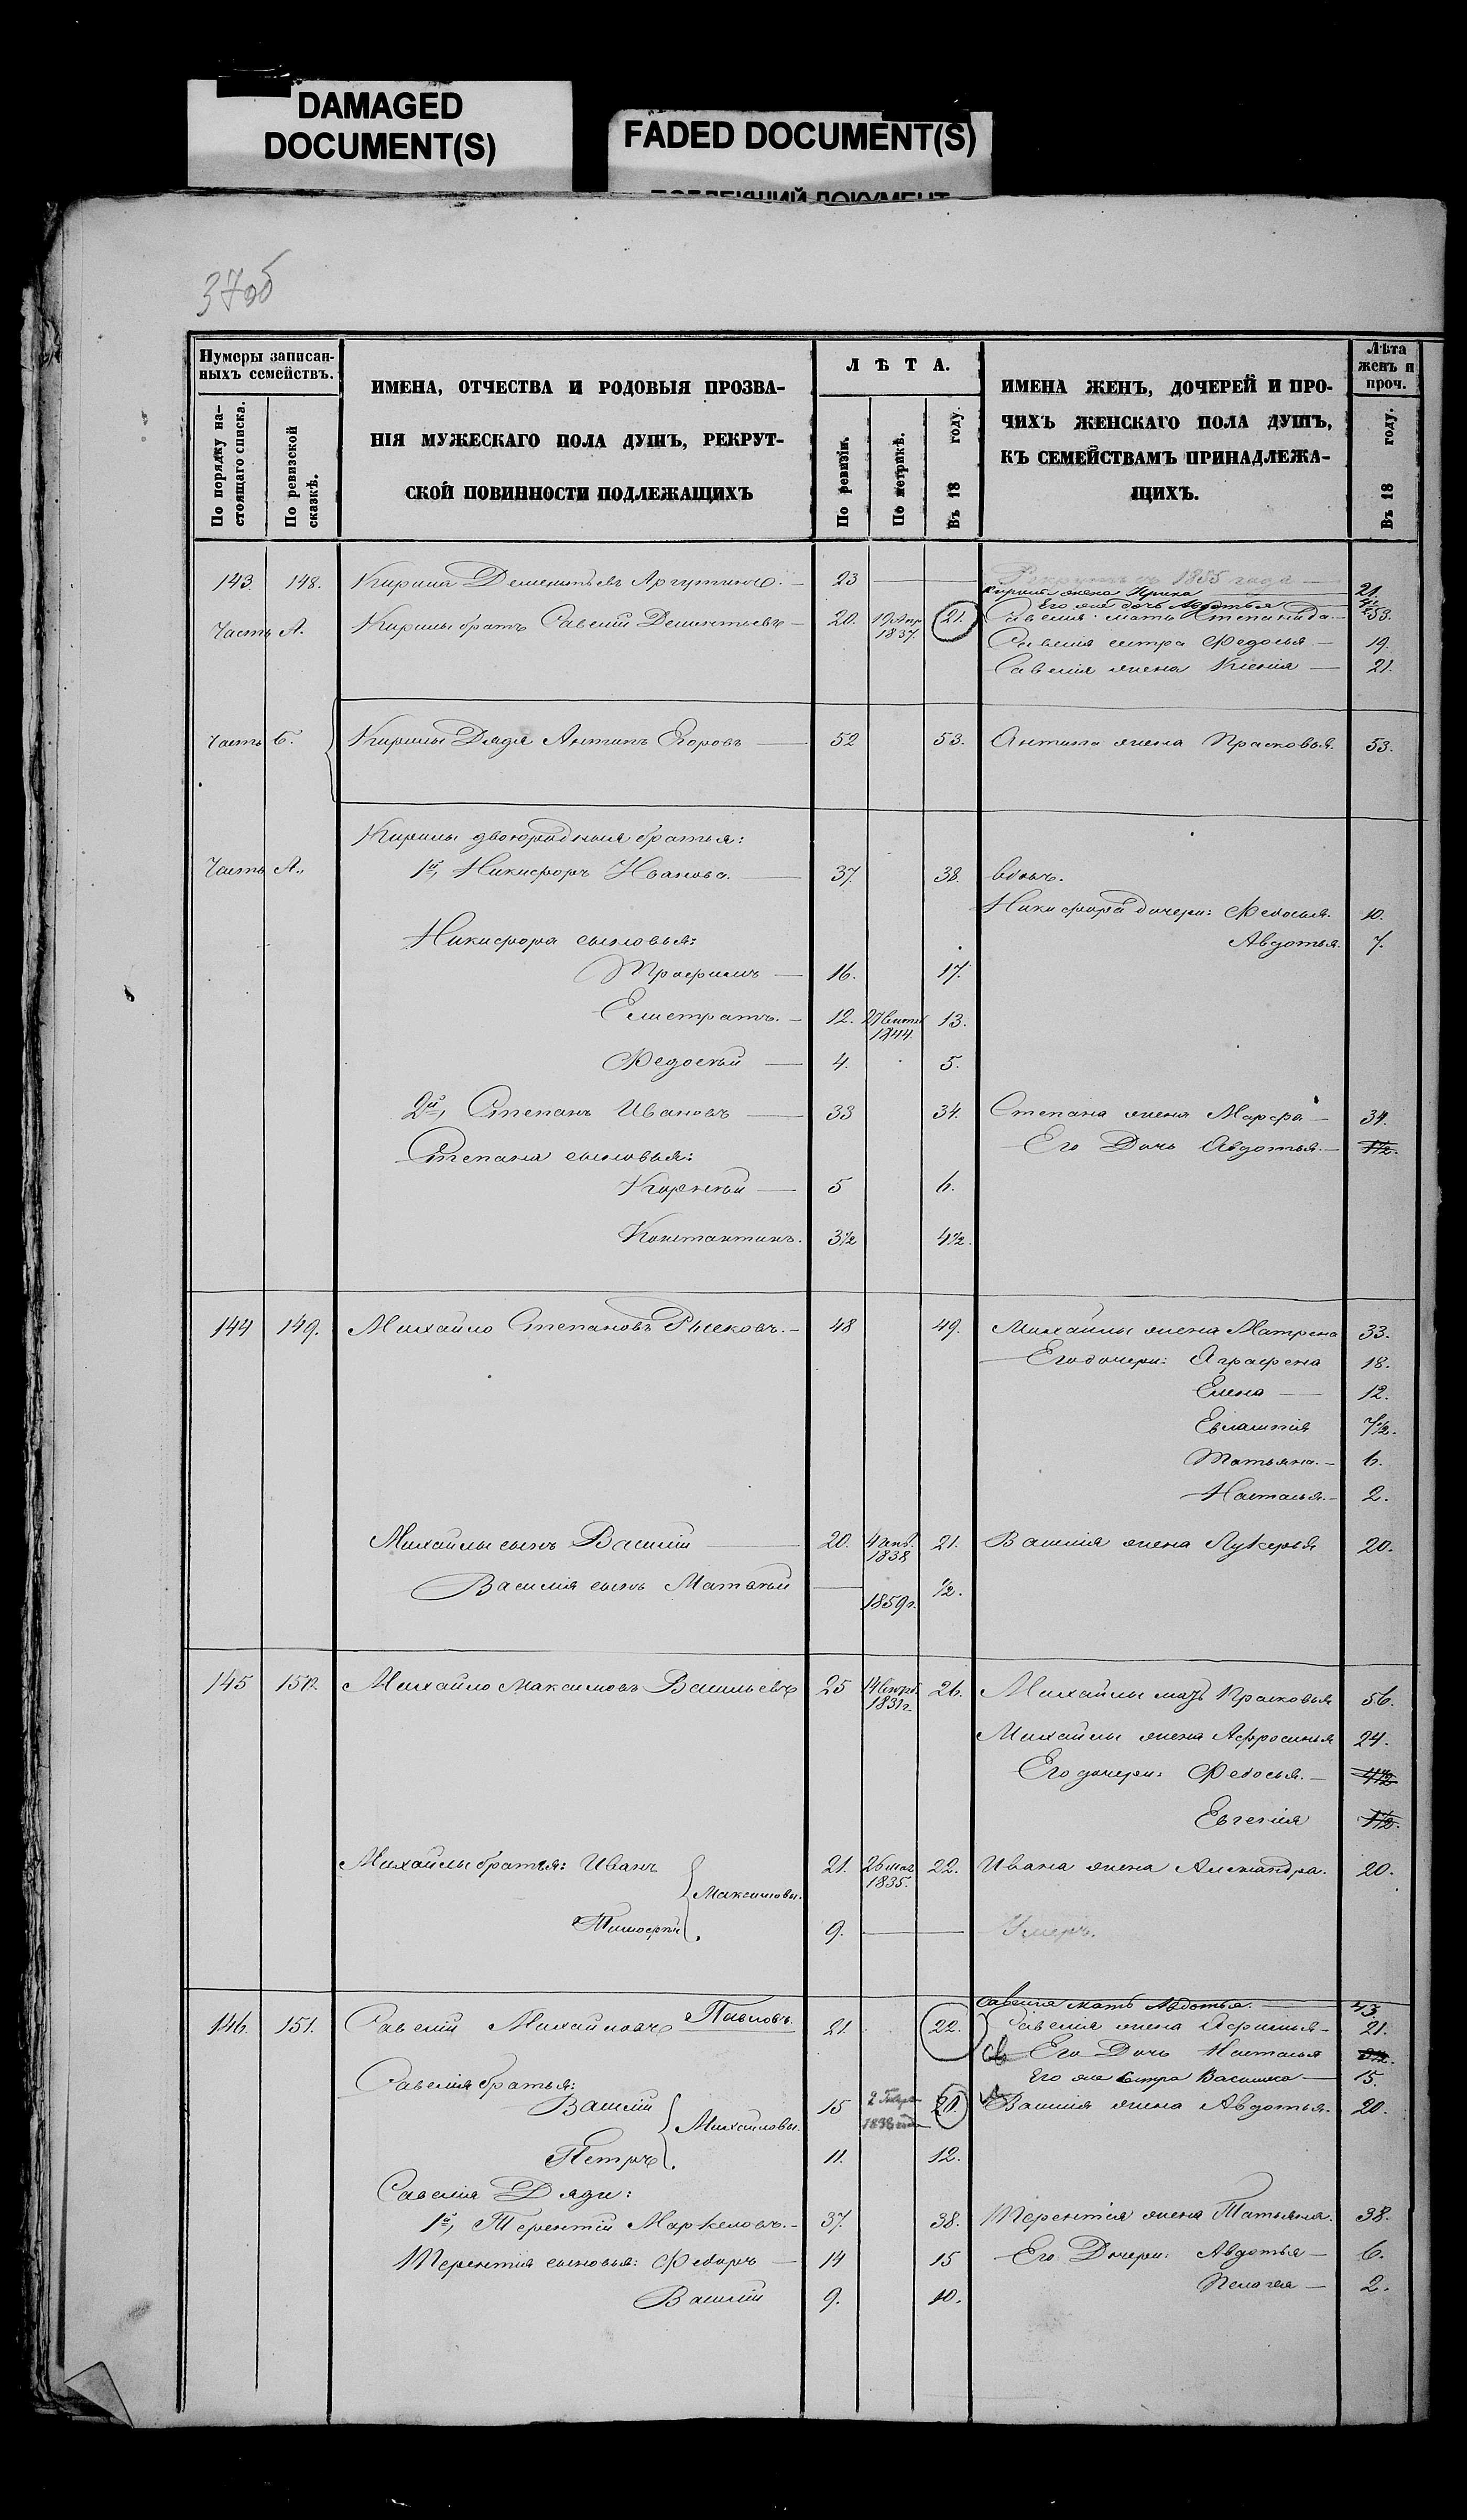 DAMAGED
DOCUMENT(S)
FADED DOCUMENT(S)
37об
Нумеры записан-
ныхъ семействъ.
По порядку на-
стоящаго списка.
По ревизской
сказкѣ.
ИМЕНА, ОТЧЕСТВА И РОДОВЫЯ ПРОЗВА-
НІЯ МУЖЕСКАГО ПОЛА ДУШЪ, РЕКРУТ-
СКОЙ ПОВИННОСТИ ПОДЛЕЖАЩИХЪ
Л Ѣ Т А.
По ревизіи.
По метрикѣ.
Въ 18 году.
ИМЕНА ЖЕНЪ, ДОЧЕРЕЙ И ПРО-
ЧИХЪ ЖЕНСКАГО ПОЛА ДУШЪ,
КЪ СЕМЕЙСТВАМЪ ПРИНАДЛЕЖА-
ЩИХЪ.
Лѣта
женъ и
проч.
Въ 18 году.
143 148. Кирила Дементьевъ 23 Рекрутъ съ 1855 года
Кирилы жена Ирина 21.
Его же дочь Авдотья
Часть А. Кирилы братъ Савелій Дементьевъ 20. 19 Апр 1837. 21. Савелія мать Степанида 53.
Савелія сестра Федосья 19.
Савелія жена Ксенія 21.
Часть Б. Кирилы Дядя Антипъ Егоровъ 52 53. Антипа жена Прасковья 53.
Кирилы двоюродныя братья:
Часть А. 1й, Никифоръ Ивановъ 37. 38. вдовъ.
Никифора дочери: Федосья 10.
Никифора сыновья: Авдотья 7.
Трофимъ 16. 17.
Елистратъ 12. 1844. 13.
Федосѣй 4. 5.
2й, Степанъ Ивановъ 33 34. Степана жена Марфа 34.
Степана сыновья: Его Дочь Авдотья 1½.
Корнѣй 5 6.
Константинъ. 3½ 4½.
144 149. Михайло Степановъ 48 49. Михайлы жена Матрена 33.
Его дочери: Аграфена 18.
Елена 12.
Евлампія 7½.
Татьяна 6.
Настасья 2.
Михайлы сынъ Василій 20. 1838 21. Василія жена Лукерья 20.
Василія сынъ Матвѣй 1859 г. ½.
145 Михайло Максимовъ Васильевъ 25 1831 г. 26. Михайлы мать Прасковья 56.
Михайлы жена Афросинья 24.
Его дочери: Федосья 4½
Евгенія 1½.
Михайлы братья: Иванъ 21. 26 мая 1835. 22. Ивана жена Александра. 20.
Максимовы.
Тимофѣй 9. Умеръ.
Савелія мать Авдотья 43
146. 151. Савелій Михайловъ Павловъ 21. 22. Савелія жена Афимья 21.
Его Дочь Настасья
Его же сестра Василиса 15.
Савелія братья:
Василій 15 1838 года 20. Василія жена Авдотья 20.
Михайловы.
Петръ 11. 12.
Савелія Дяди:
1й, Терентій Маркеловъ. 37. 38. Терентія жена Татьяна. 38.
Терентія сыновья: Федоръ 14 15 Его Дочери: Авдотья 6.
Василій 9. 10. Пелагея 2.